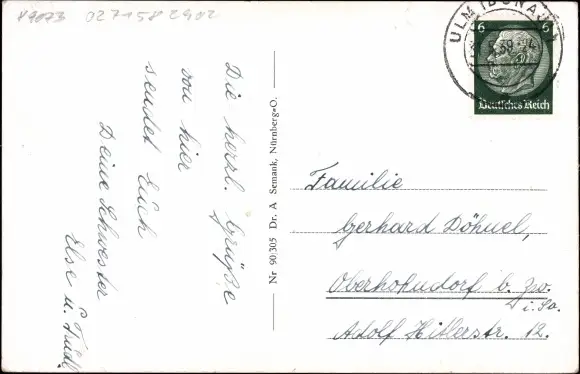 89073 0271582902
Die herzl. Grüße
von hier
sendet Euch
Deine Schwester
Else u. Trudl.
Nr 90/305 Dr. A Semank, Nürnberg-O.
ULM (DONAU)
5.39
6 6
Deutsches Reich
Familie
Gerhard Döhnel,
Oberhohndorf b. Zw.
i. Sa.
Adolf Hitlerstr. 12.